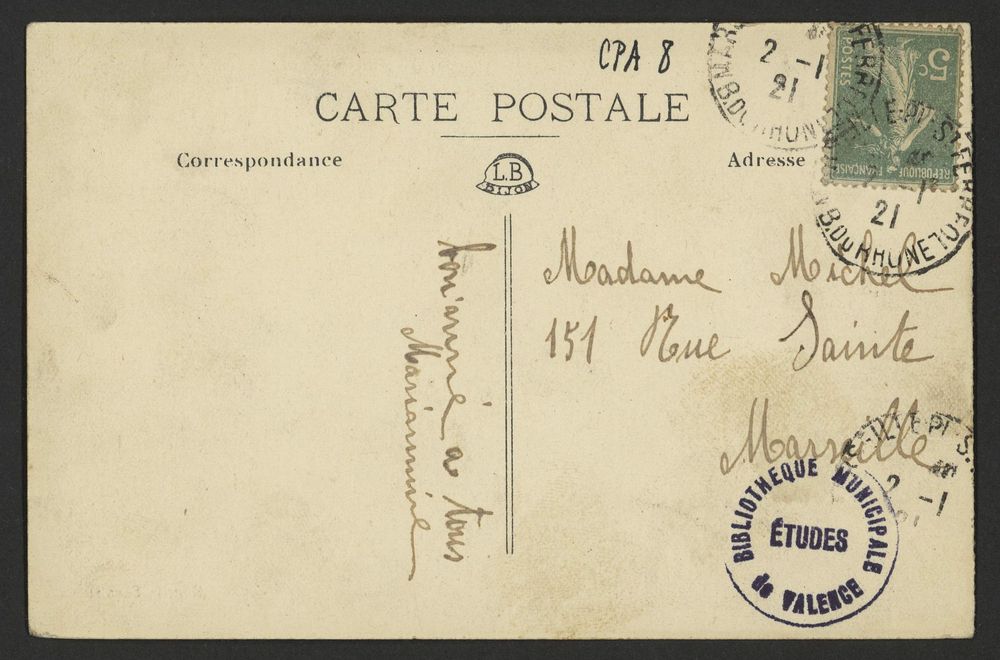 CPA 8
CARTE POSTALE
Correspondance
Adresse
L.B
DIJON
5c
POSTES
REPUBLIQUE FRANÇAISE
2 -1
21
B. DU RHONE
21
B. DU RHONE
Madame Michel
151 Rue Sainte
Marseille
bon'année a tous
2 -1
BIBLIOTHEQUE MUNICIPALE
ÉTUDES
de VALENCE